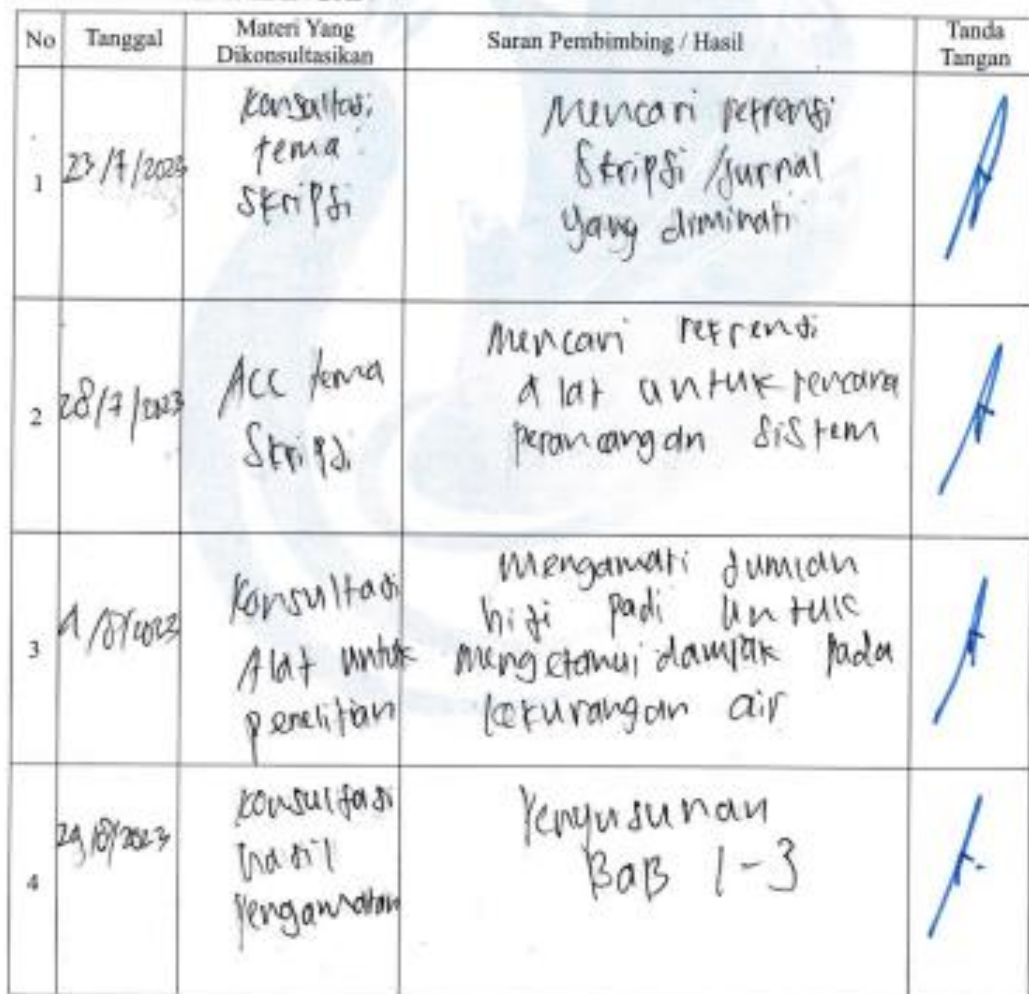 No Tanggal Materi Yang Dikonsultasikan Saran Pembimbing / Hasil Tanda Tangan
1 23/7/2023
Konsultasi
tema
Skripsi
Mencari refrensi
Skripsi /Jurnal
yang diminati
2 28/7/2023
Acc tema
Skripsi
Mencari refrensi
alat untuk rencana
perancangan sistem
3
Konsultasi
Alat untuk
penelitian
Mengamati Jumlah
biji padi untuk
mengetahui dampak pada
kekurangan air
4 29/8/2023
Konsultasi
hasil
pengamatan
Penyusunan
BaB 1-3